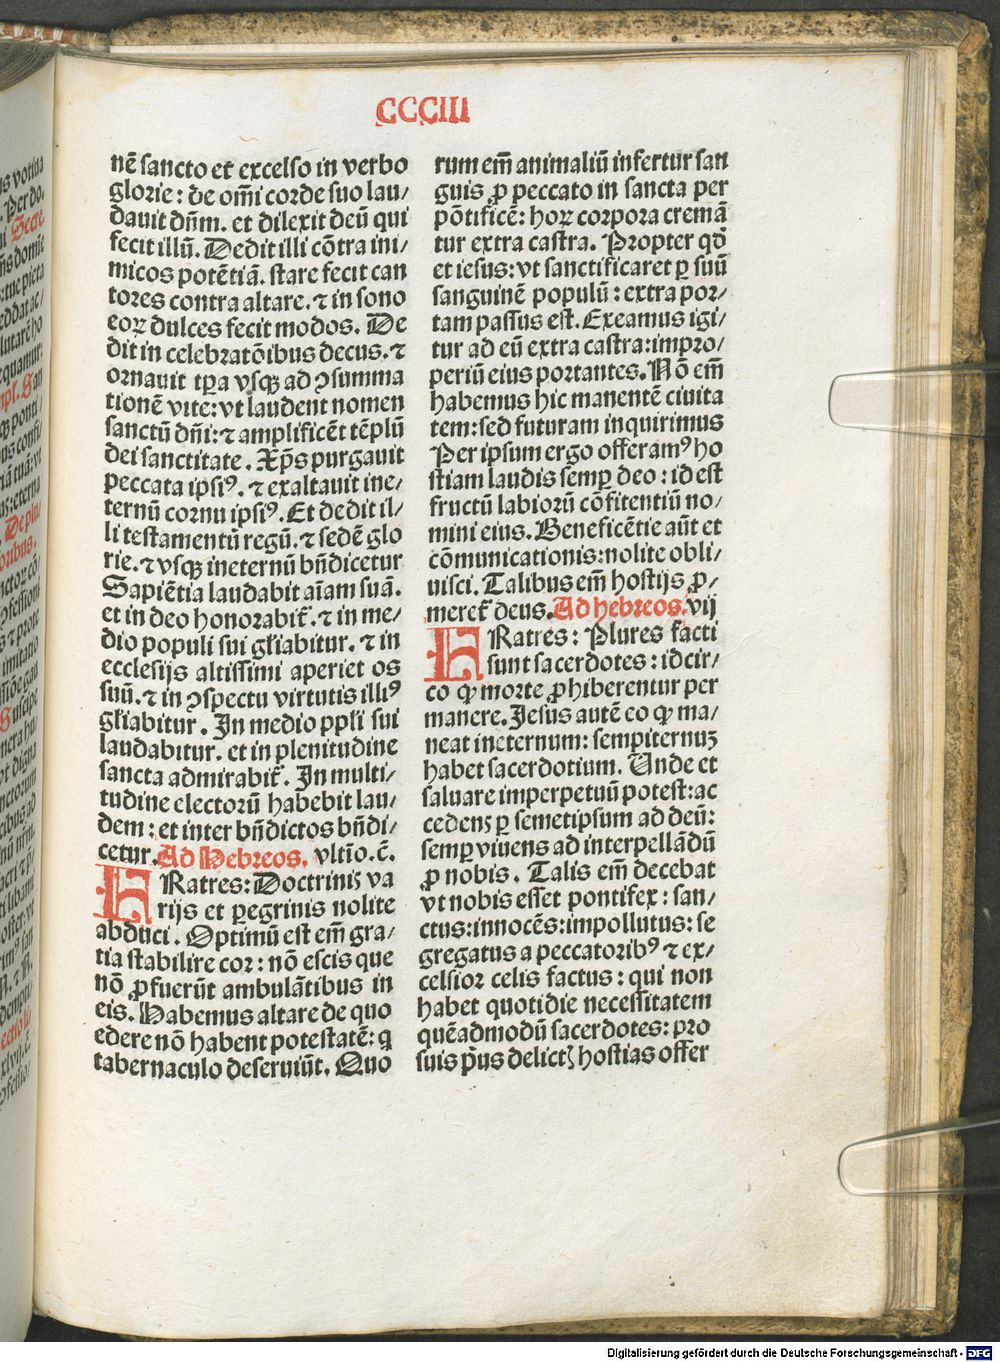 CCCIII
nē sancto et excelso in verbo
glorie: de om̄i corde suo lau/
dauit dn̄m. et dilexit deū qui
fecit illū. Dedit illi cōtra ini/
micos potētiā. stare fecit can
tores contra altare. ⁊ in sono
eoꝝ dulces fecit modos. De
dit in celebratōibus decus. ⁊
ornauit tꝑa vsqꝫ ad ꝯsumma
tionē vite: vt laudent nomen
sanctū dn̄i: ⁊ amplificēt tēplū
dei sanctitate. Xp̄s purgauit
peccata ipsiꝰ. ⁊ exaltauit ine/
ternū cornu ipsiꝰ. Et dedit il/
li testamentū regū. ⁊ sedē glo
rie. ⁊ vsqꝫ ineternū bn̄dicetur
Sapiētia laudabit aīam suā.
et in deo honorabit᷑. ⁊ in me/
dio populi sui gl̄iabitur. ⁊ in
ecclesijs altissimi aperiet os
suū. ⁊ in ꝯspectu virtutis illiꝰ
gl̄iabitur. In medio ppl̄i sui
laudabitur. et in plenitudine
sancta admirabit᷑. In multi/
tudine electorū habebit lau/
dem: et inter bn̄dictos bn̄di/
cetur. Ad Hebreos. vltīo. c̄.
FRatres: Doctrinis va
rijs et ꝑegrinis nolite
abduci. Optimū est em̄ gra/
tia stabilire cor: nō escis que
nō ꝓfuerūt ambulātibus in
eis. Habemus altare de quo
edere nō habent potestatē: q
tabernaculo deseruiūt. Quo
rum em̄ animaliū infertur san
guis ꝓ peccato in sancta per
pōtificē: hoꝝ corpora cremā
tur extra castra. Propter qd̄
et iesus: vt sanctificaret ꝑ suū
sanguinē populū: extra por/
tam passus est. Exeamus igi/
tur ad eū extra castra: impro/
periū eius portantes. Nō em̄
habemus hic manentē ciuita
tem: sed futuram inquirimus
Per ipsum ergo offeramꝰ ho
stiam laudis semꝑ deo: id est
fructū labiorū cōfitentiū no/
mini eius. Beneficētie aūt et
cōmunicationis: nolite obli/
uisci. Talibus em̄ hostijs ꝓ/
meret᷑ deus. Ad hebreos. vij
FRatres: Plures facti
sunt sacerdotes: idcir/
co ꝙ morte ꝓhiberentur per
manere. Jesus autē eo ꝙ ma/
neat ineternum: sempiternuꝫ
habet sacerdotium. Unde et
saluare imperpetuū potest: ac
cedens ꝑ semetipsum ad deū:
semꝑ viuens ad interpellādū
ꝓ nobis. Talis em̄ decebat
vt nobis esset pontifex: san/
ctus: innocēs: impollutus: se
gregatus a peccatoribꝰ ⁊ ex/
celsior celis factus: qui non
habet quotidie necessitatem
quēadmodū sacerdotes: pro
suis p̄us delictꝭ hostias offer
Digitalisierung gefördert durch die Deutsche Forschungsgemeinschaft - DFG